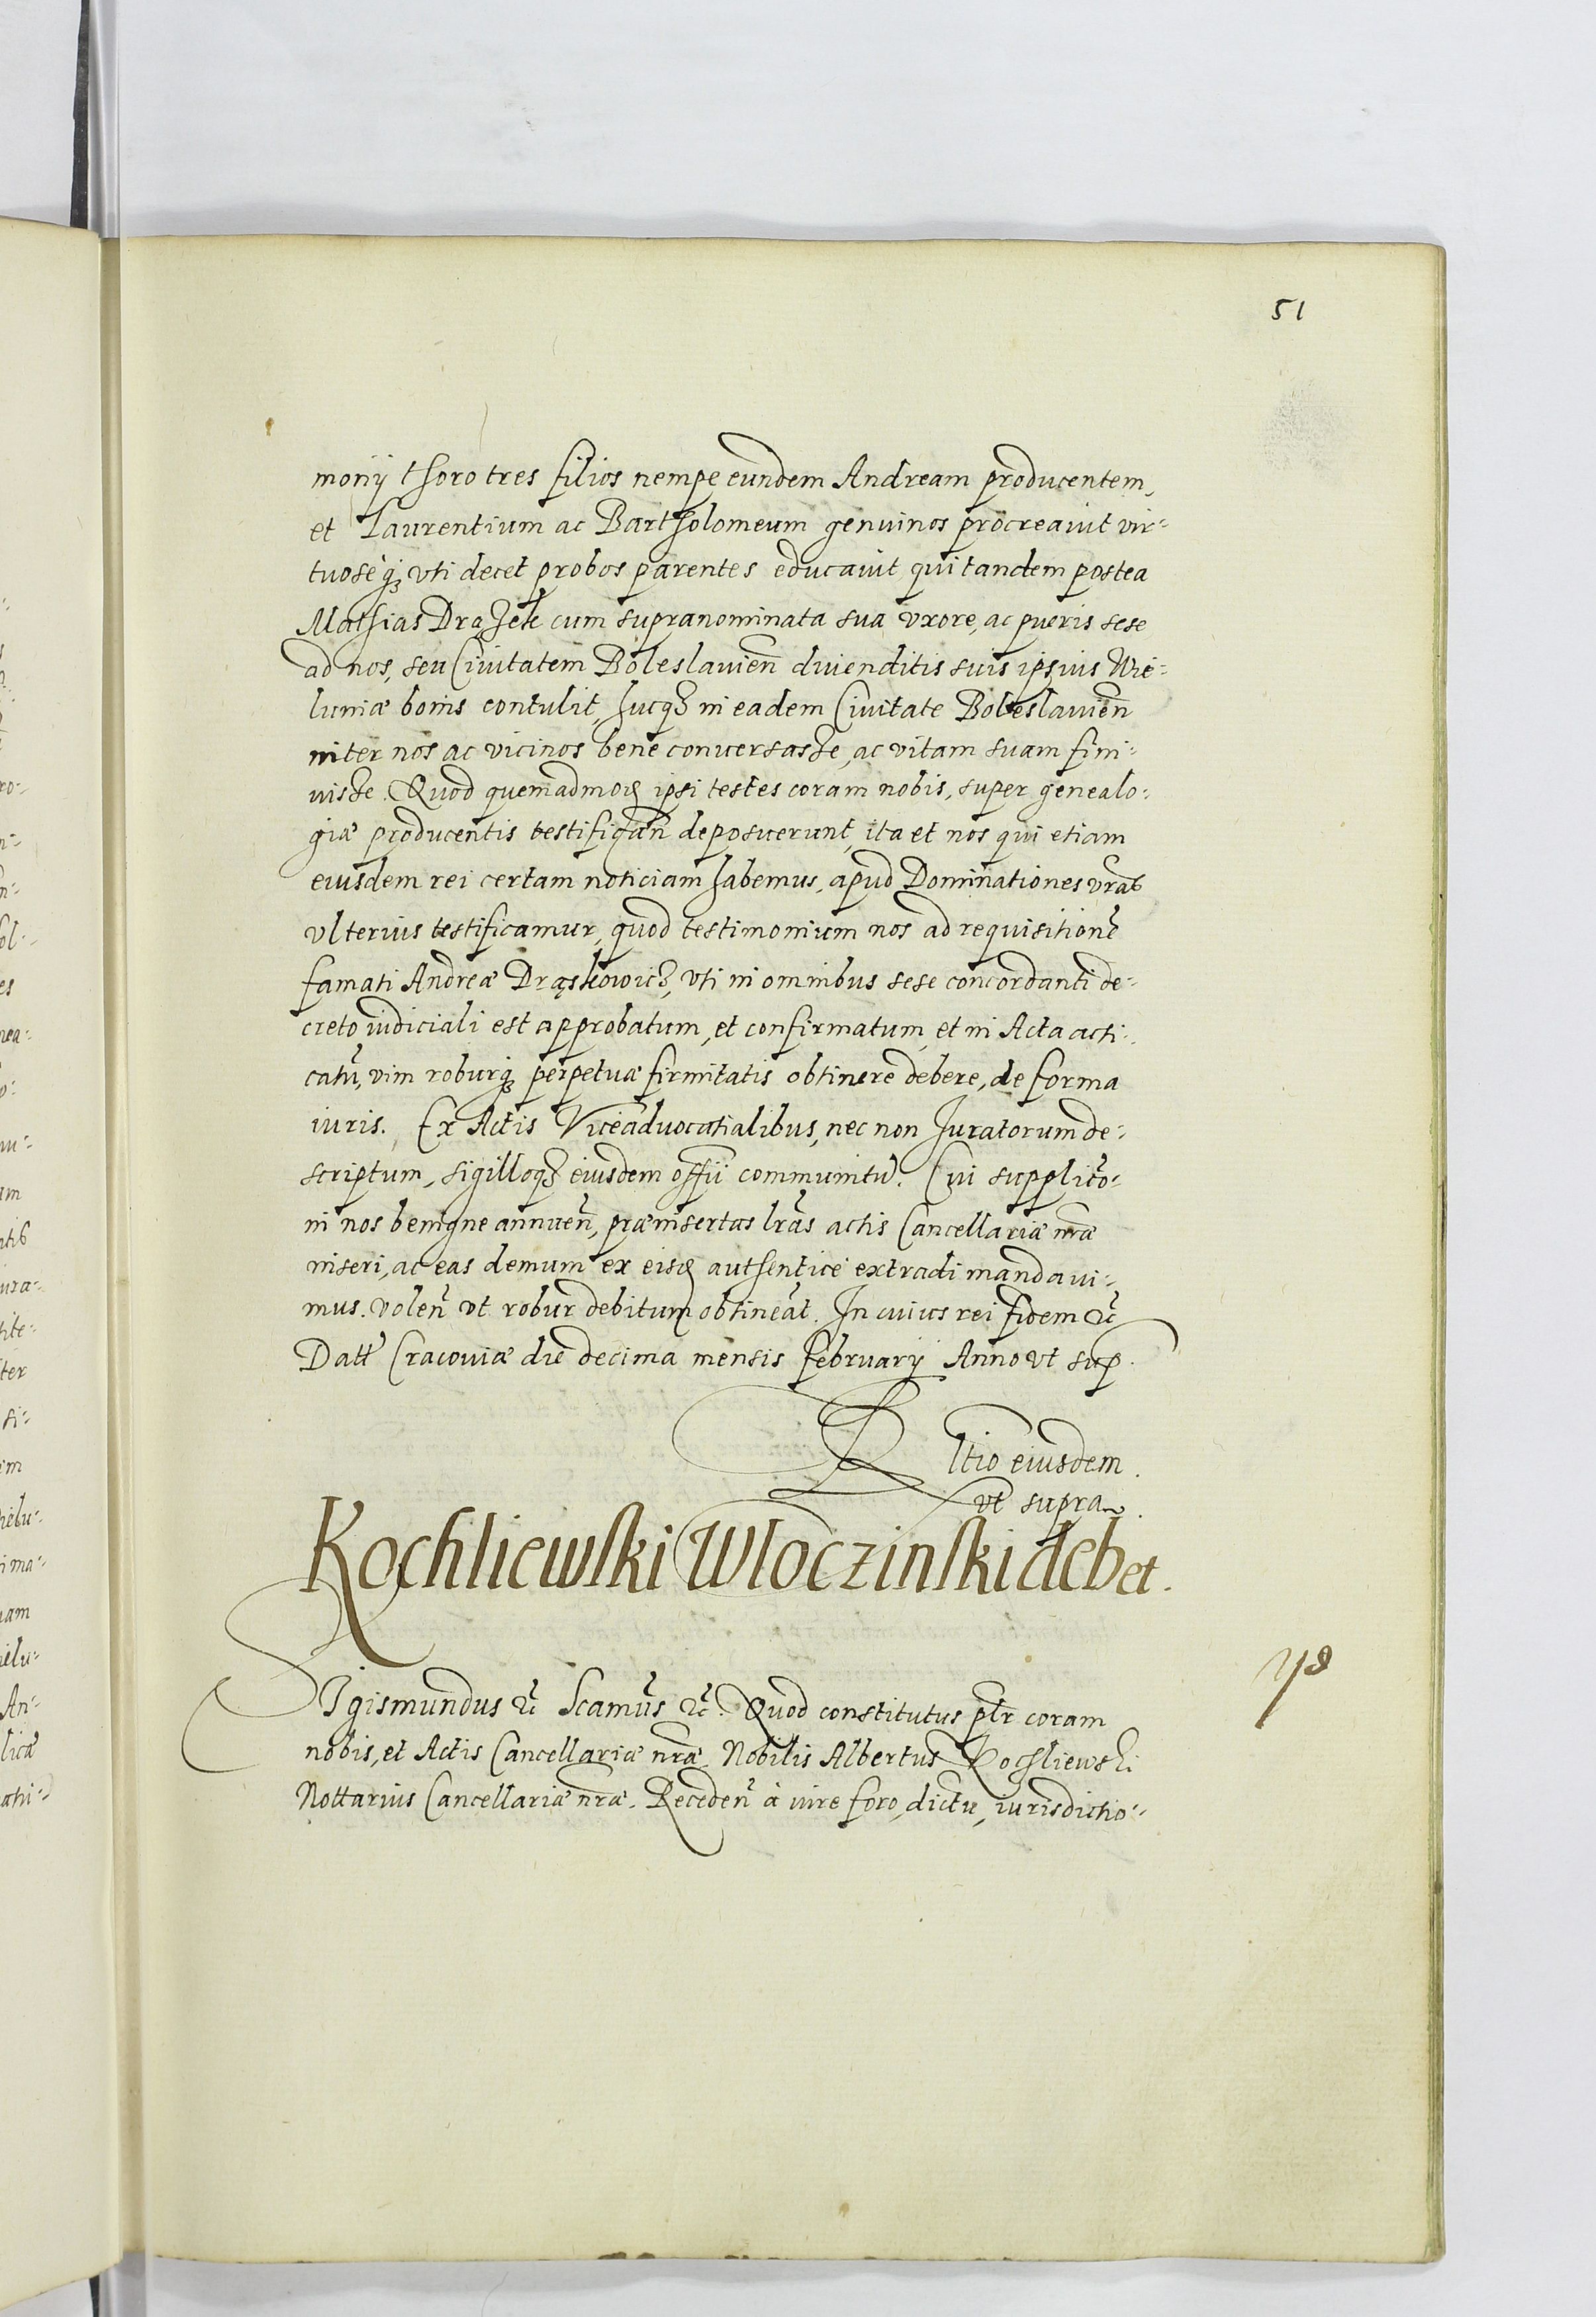 51
monij thoro tres filios nempe eundem Andream producentem,
et Laurentium ac Bartholomeum genuinos procreauit vir-
tuosèq3 vti decet probos parentes educauit, qui tandem postea
Mathias Drąszek cum supranominata sua vxore, ac pueris sese
ad nos, seu Ciuitatem Boleslauień diuenditis suis ipsius Wie-
luniæ bonis contulit, hucq3 in eadem Ciuitate Boleslauień
inter nos ac vicinos bene conuersasse, ac vitam suam fini-
uisse. Quod quemadmo͠ ipsi testes coram nobis, super genealo-
giæ producentis testifican̄ deposuerunt, ita et nos qui etiam
eiusdem rei certam noticiam habemus, apud Dominationes vrãs
vlterius testificamur, quod testimonium nos ad requisitionẽ
famati Andreæ Drąskowicz, vti in omnibus sese concordanti de-
creto iudiciali est approbatum, et confirmatum, et in Acta acti-
catũ, vim roburq3 perpetuæ firmitatis obtinere debere, de forma
iuris. Ex Actis Viceaduocatialibus, nec non Juratorum de-
scriptum, sigilloq3 eiusdem offii communitũ. Cui supplicõ-
ni nos benigne annueñ, præinsertas lrãs actis Cancellariæ nrãæ
inseri, ac eas demum ex eisđ authentice extradi mandaui-
mus. voleñ vt robur debitum obtineãt. In cuius rei fidem &c̃
Datt̃ Cracouiæ die decima mensis February Anno vt sup.
Rltio eiusdem.
vt supra.
Kochliewski Wloczinski debet.
SIgismundus &c̃ Scamũs &c̃. Quod constitutus pltr̃ coram
nobis, et Actis Cancellariæ nrãæ, Nobilis Albertus Kochliewski
Nottarius Cancellariæ nrãæ. Recedeñ à iure foro, dictu, iurisdictio-